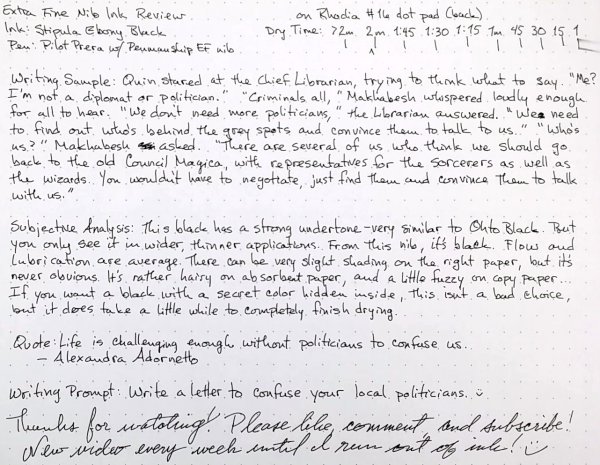 Extra Fine Nib Ink Review on Rhodia #16 dot pad (back)
Ink: Stipula Ebony Black Dry Time: >2m 2m 1:45 1:30 1:15 1m 45 30 15 1
Pen: Pilot Prera w/ Penmanship EF nib
Writing Sample: Quin stared at the Chief Librarian, trying to think what to say. "Me?
I'm not a diplomat or politician." "Criminals all," Makhabesh whispered loudly enough
for all to hear. "We don't need more politicians," the Librarian answered. "We need
to find out who's behind the grey spots and convince them to talk to us." "Who's
us?" Makhabesh asked. "There are several of us who think we should go
back to the old Council Magica, with representatives for the sorcerers as well as
the wizards. You wouldn't have to negotiate, just find them and convince them to talk
with us."
Subjective Analysis: This black has a strong undertone - very similar to Ohto Black. But
you only see it in wider, thinner applications. From this nib, it's black. Flow and
lubrication are average. There can be very slight shading on the right paper, but it's
never obvious. It's rather hairy on absorbent paper, and a little fuzzy on copy paper...
If you want a black with a secret color hidden inside, this isn't a bad choice,
but it does take a little while to completely finish drying.
Quote: Life is challenging enough without politicians to confuse us.
- Alexandra Adornetto
Writing Prompt: Write a letter to confuse your local politicians. :)
Thanks for watching! Please like, comment, and subscribe!
New video every week until I run out of ink! :)